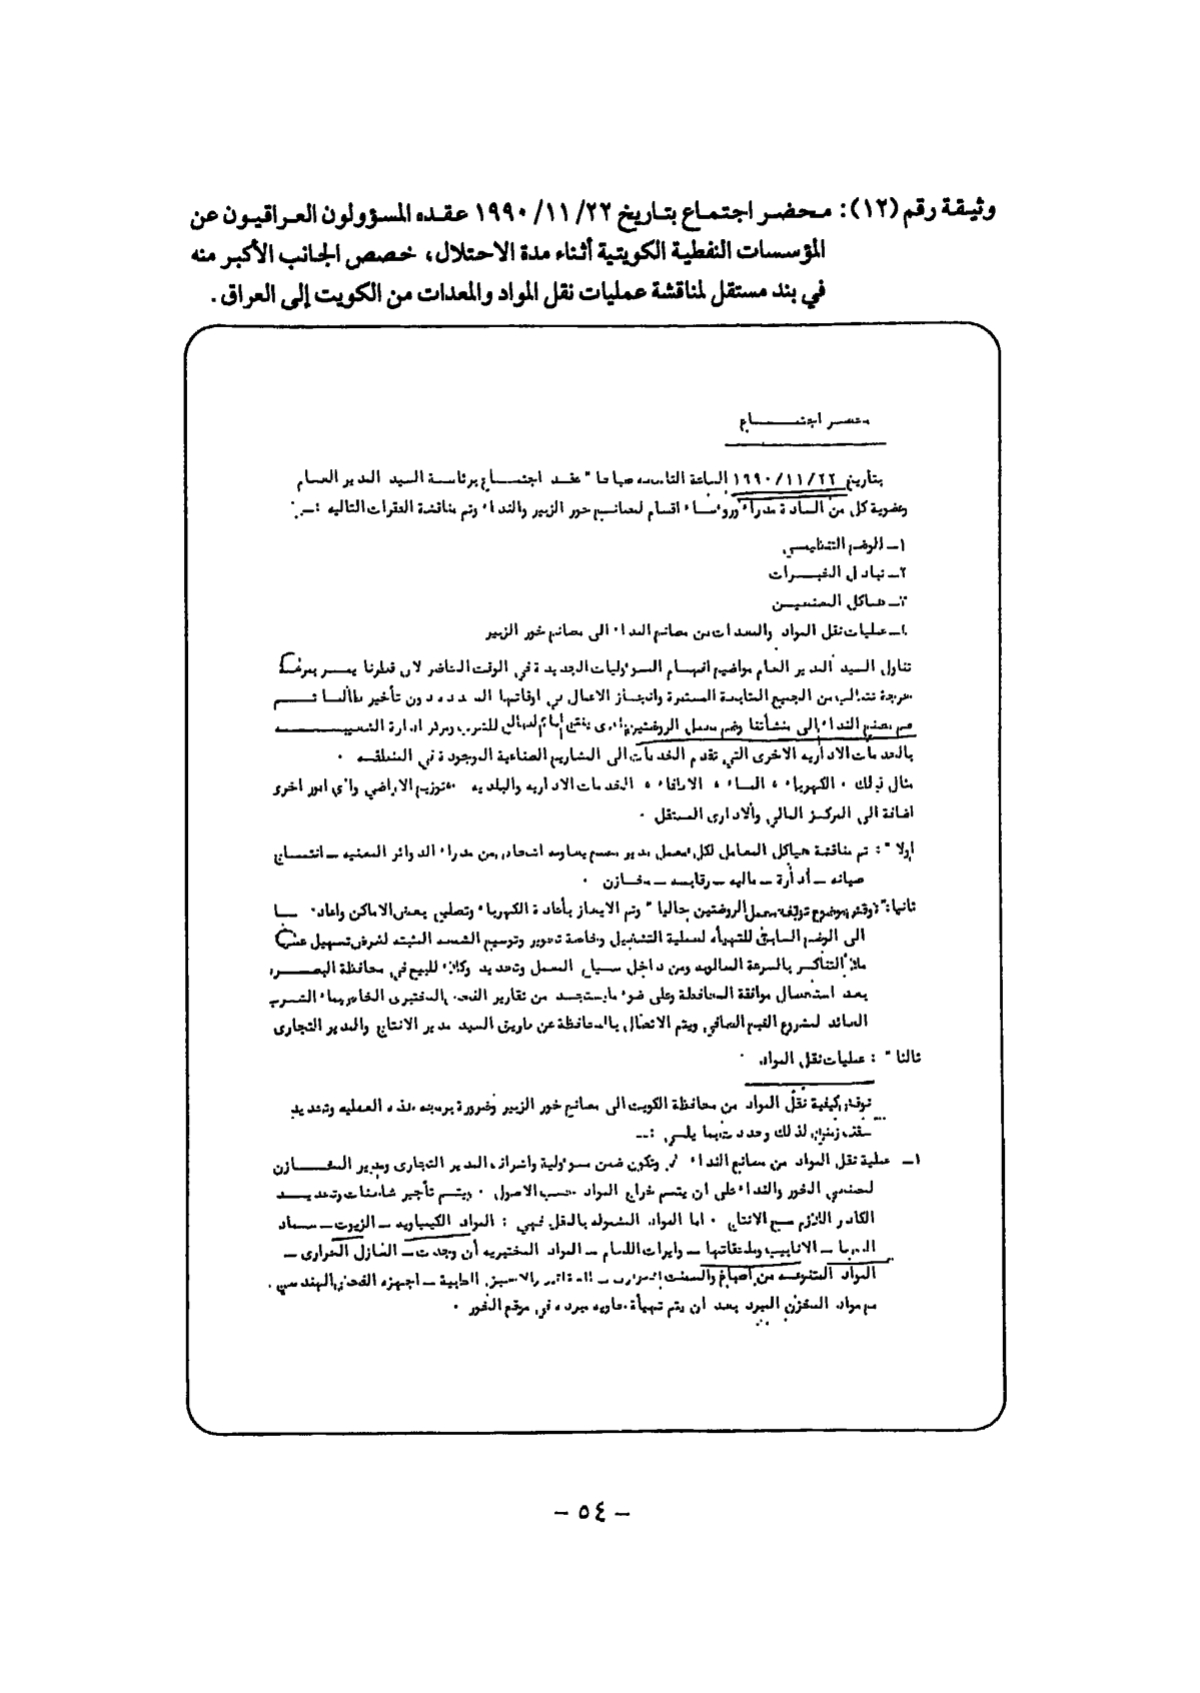 وثيقة رقم (١٢): محضر اجتماع بتاريخ ١٩٩٠/١١/٢٢ عقده المسؤولون العراقيون عن
المؤسسات النفطية الكويتية أثناء مدة الاحتلال، خصص الجانب الأكبر منه
في بند مستقل لمناقشة عمليات نقل المواد والمعدات من الكويت إلى العراق.
محضر اجتمـــاع
بتأريخ ١٩٩٠/١١/٢٢ الساعة التاسعه صباحا" عقد اجتمـــاع برئاسة السيد المدير العـام
وعضوية كل من السادة مدراء ورؤساء اقسام لمصانع خور الزبير والنداء وتم مناقشة الفقرات التاليه :ـ
١ـ الوضع التنظيمـي
٢ـ تبادل الخبـــرات
٣ـ هياكل المصنعيـن
٤ـ عمليات نقل المواد والمعدات من مصانع النداء الى مصانع خور الزبير
تناول السيد المدير العام مواضيع المسوؤليات الجديدة في الوقت الحاضر لان قطرنا يمـر بمرحلة
حرجة تتطلب من الجميع المتابعة المستمرة وانجاز الاعمال في اوقاتها المحدده دون تأخير طالما تـــم
ضم مصنع النداء الى منشأتنا وضم معمل الروضتين للشرب ومركز ادارة الشعيبـــه
بالخدمات الاداريه الاخرى التي تقدم الخدمات الى المشاريع الصناعية الموجودة في المنطقـه .
مثال ذلك . الكهرباء ، الماء ، الاطفاء ، الخدمات الاداريه والبلديه ، توزيع الاراضي واي امور اخرى
اضافة الى المركـز المالي والادارى المستقل .
اولا" : تم مناقشة هياكل المعامل لكل معمل مدير مصنع يعاونه اشخاص من مدراء الدوائر المعنيه ـ انتـــاج
صيانه ـ أدارة ـ ماليه ـ رقابـه ـ مخـازن .
ثانيا": نوقش موضوع توقف معمل الروضتين حاليا" وتم الايعاز بأعادة الكهرباء وتصليح بعض الاماكن واعادتهـــا
الى الوضع السابق للتهيأه لعملية التشغيل وخاصة تحوير وتوسيع الفتحه المثبته لغرض تسهيل عملية
ملأ التناكر بالسرعة المطلوبه ومن داخل سياج المعمل وتحديد وكلاء للبيع في محافظة البصـره
بعـد استحصال موافقة المحافظة وعلى ضوء مايستجـد من تقارير الفحص المختبرى الخاص بماء الشرب
العائد لمشروع ويتم الاتصال بالمحافظة عن طريق السيد مدير الانتاج والمدير التجارى
ثالثا" : عمليات نقل المواد .
نوقش كيفية نقل المواد من محافظة الكويت الى مصانع خور الزبير وضرورة برمجة هذه العمليه وتحديد
سقف زمني لذلك وحددت بما يلـي :ــ
١ـ عملية نقل المواد من مصانع النداء وتكون ضمن مسوؤلية واشراف المدير التجارى ومدير المخـــازن
لمصنعي الخور والنداء على ان يتـم خراج المواد حسب الاصول . ويتـم تأجير شاحنات وتحديــد
الكادر اللازم مـع الانتاج . اما المواد المشموله بالنقل فهي : المواد الكيمياويه ـ الزيوت ـ سمـاد
اليوريا ـ الانابيب وملحقاتها ـ وايرات اللحام ـ المواد المختبريه أن وجدت ـ العازل الحرارى ـ
المواد المتنوعـه من اصباغ والسمنت الطبية ـ اجهزه الفحص الهندسـي .
مع مواد المخزن المبرد بعـد ان يتم تهيأة حاويه مبرده في موقع الخور .
ـ ٥٤ ـ